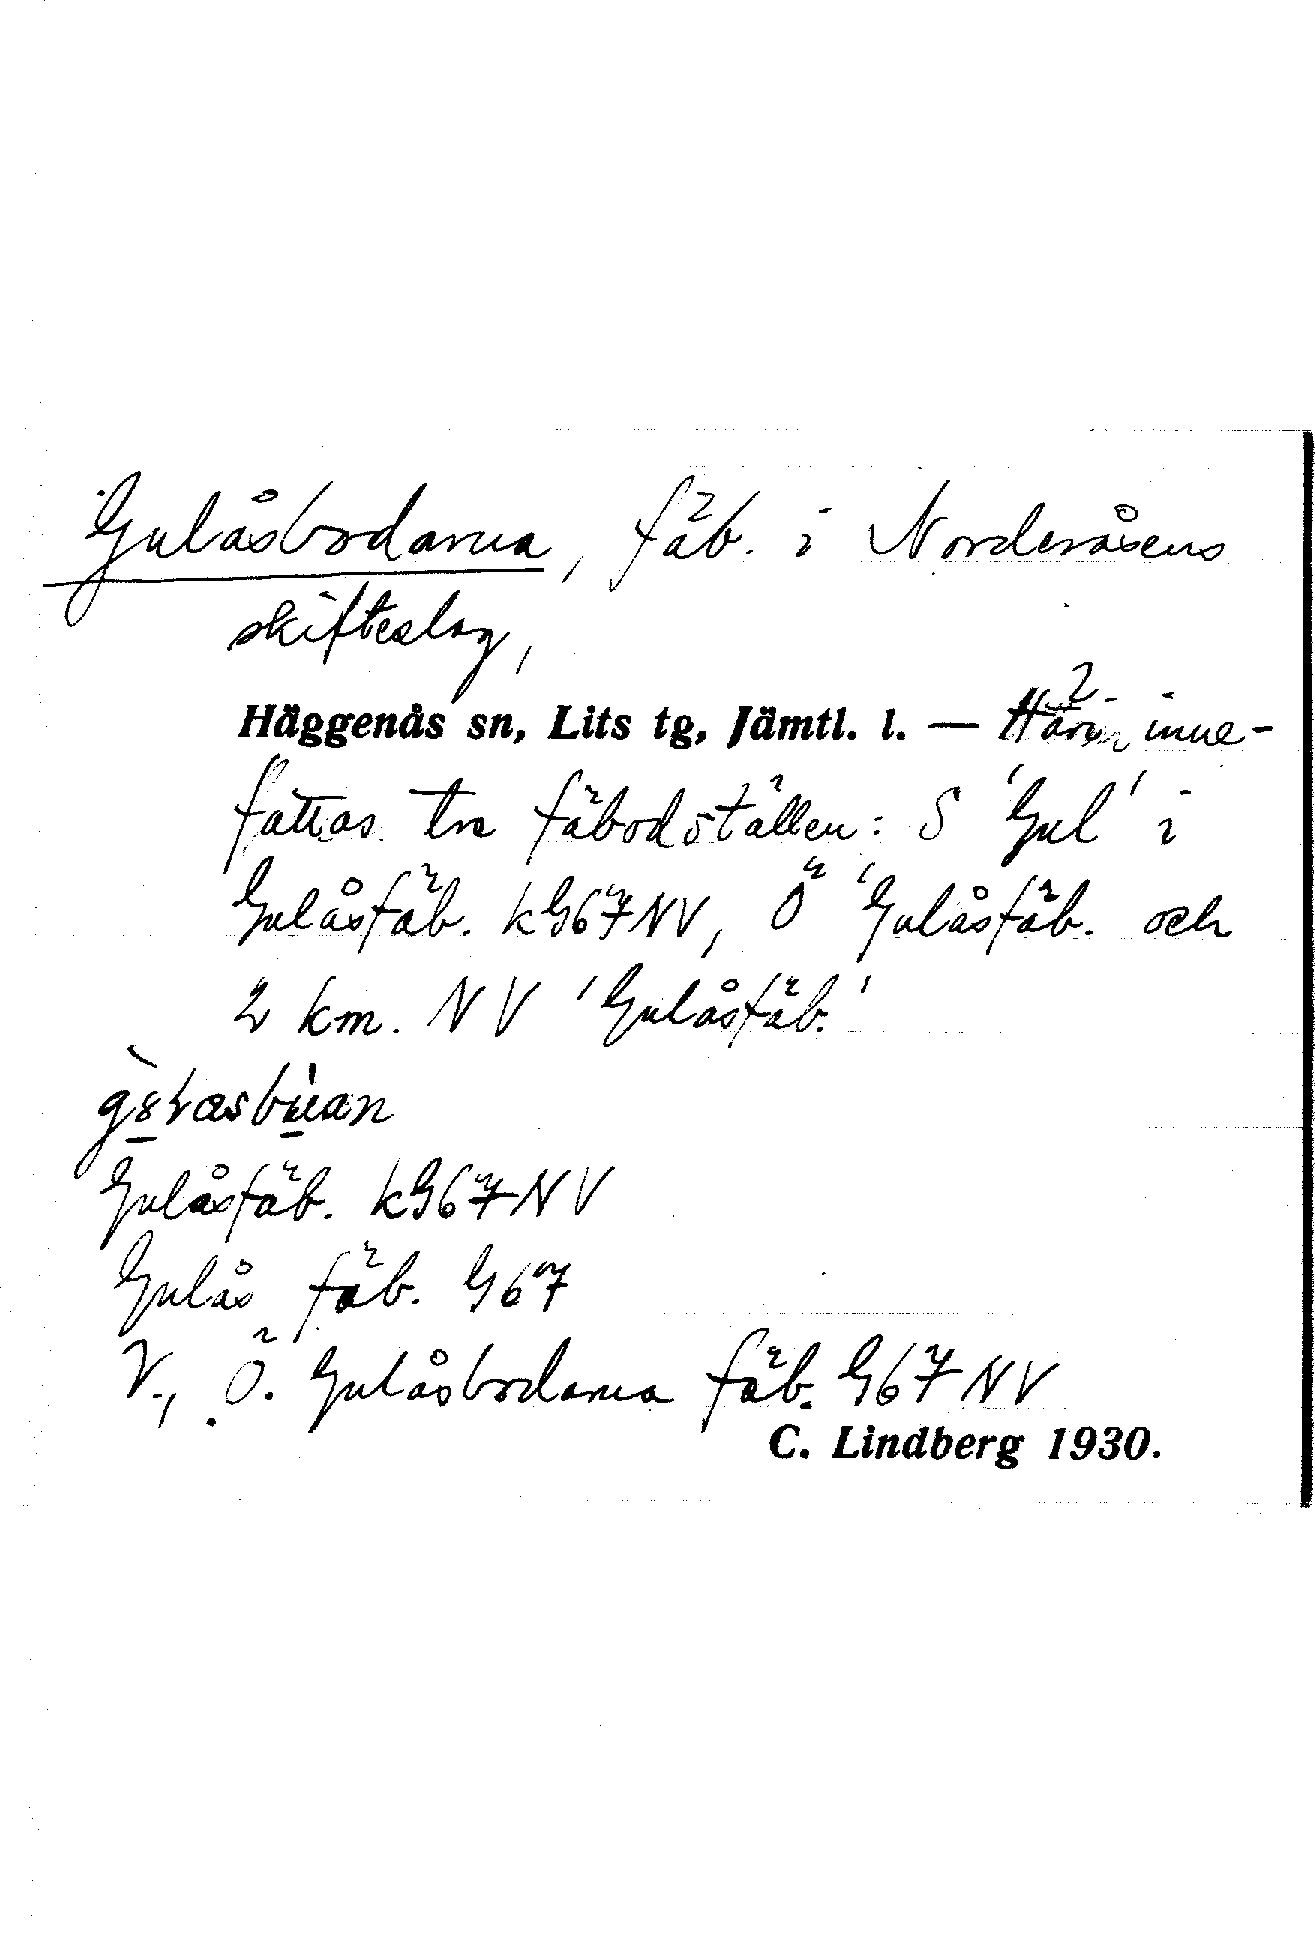 Gulåsbodarna, fäb. i Norderåsens
skifteslag,
Häggenås sn, Lits tg, Jämtl. l. — Häri inne-
fattas tre fäbodställen: S 'Gul' i
Gulåsfäb. kG67NV, Ö 'Gulåsfäb. och
2 km. NV 'Gulåsfäb.'
Gulåsfäb. kG67NV
Gulås fäb. G67
V., Ö. Gulåsbodarna fäb. G67NV
C. Lindberg 1930.